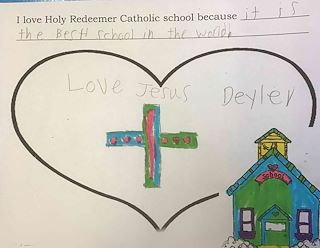 I love Holy Redeemer Catholic school because it is
the Best school in the world!
Love Jesus Deyler
School